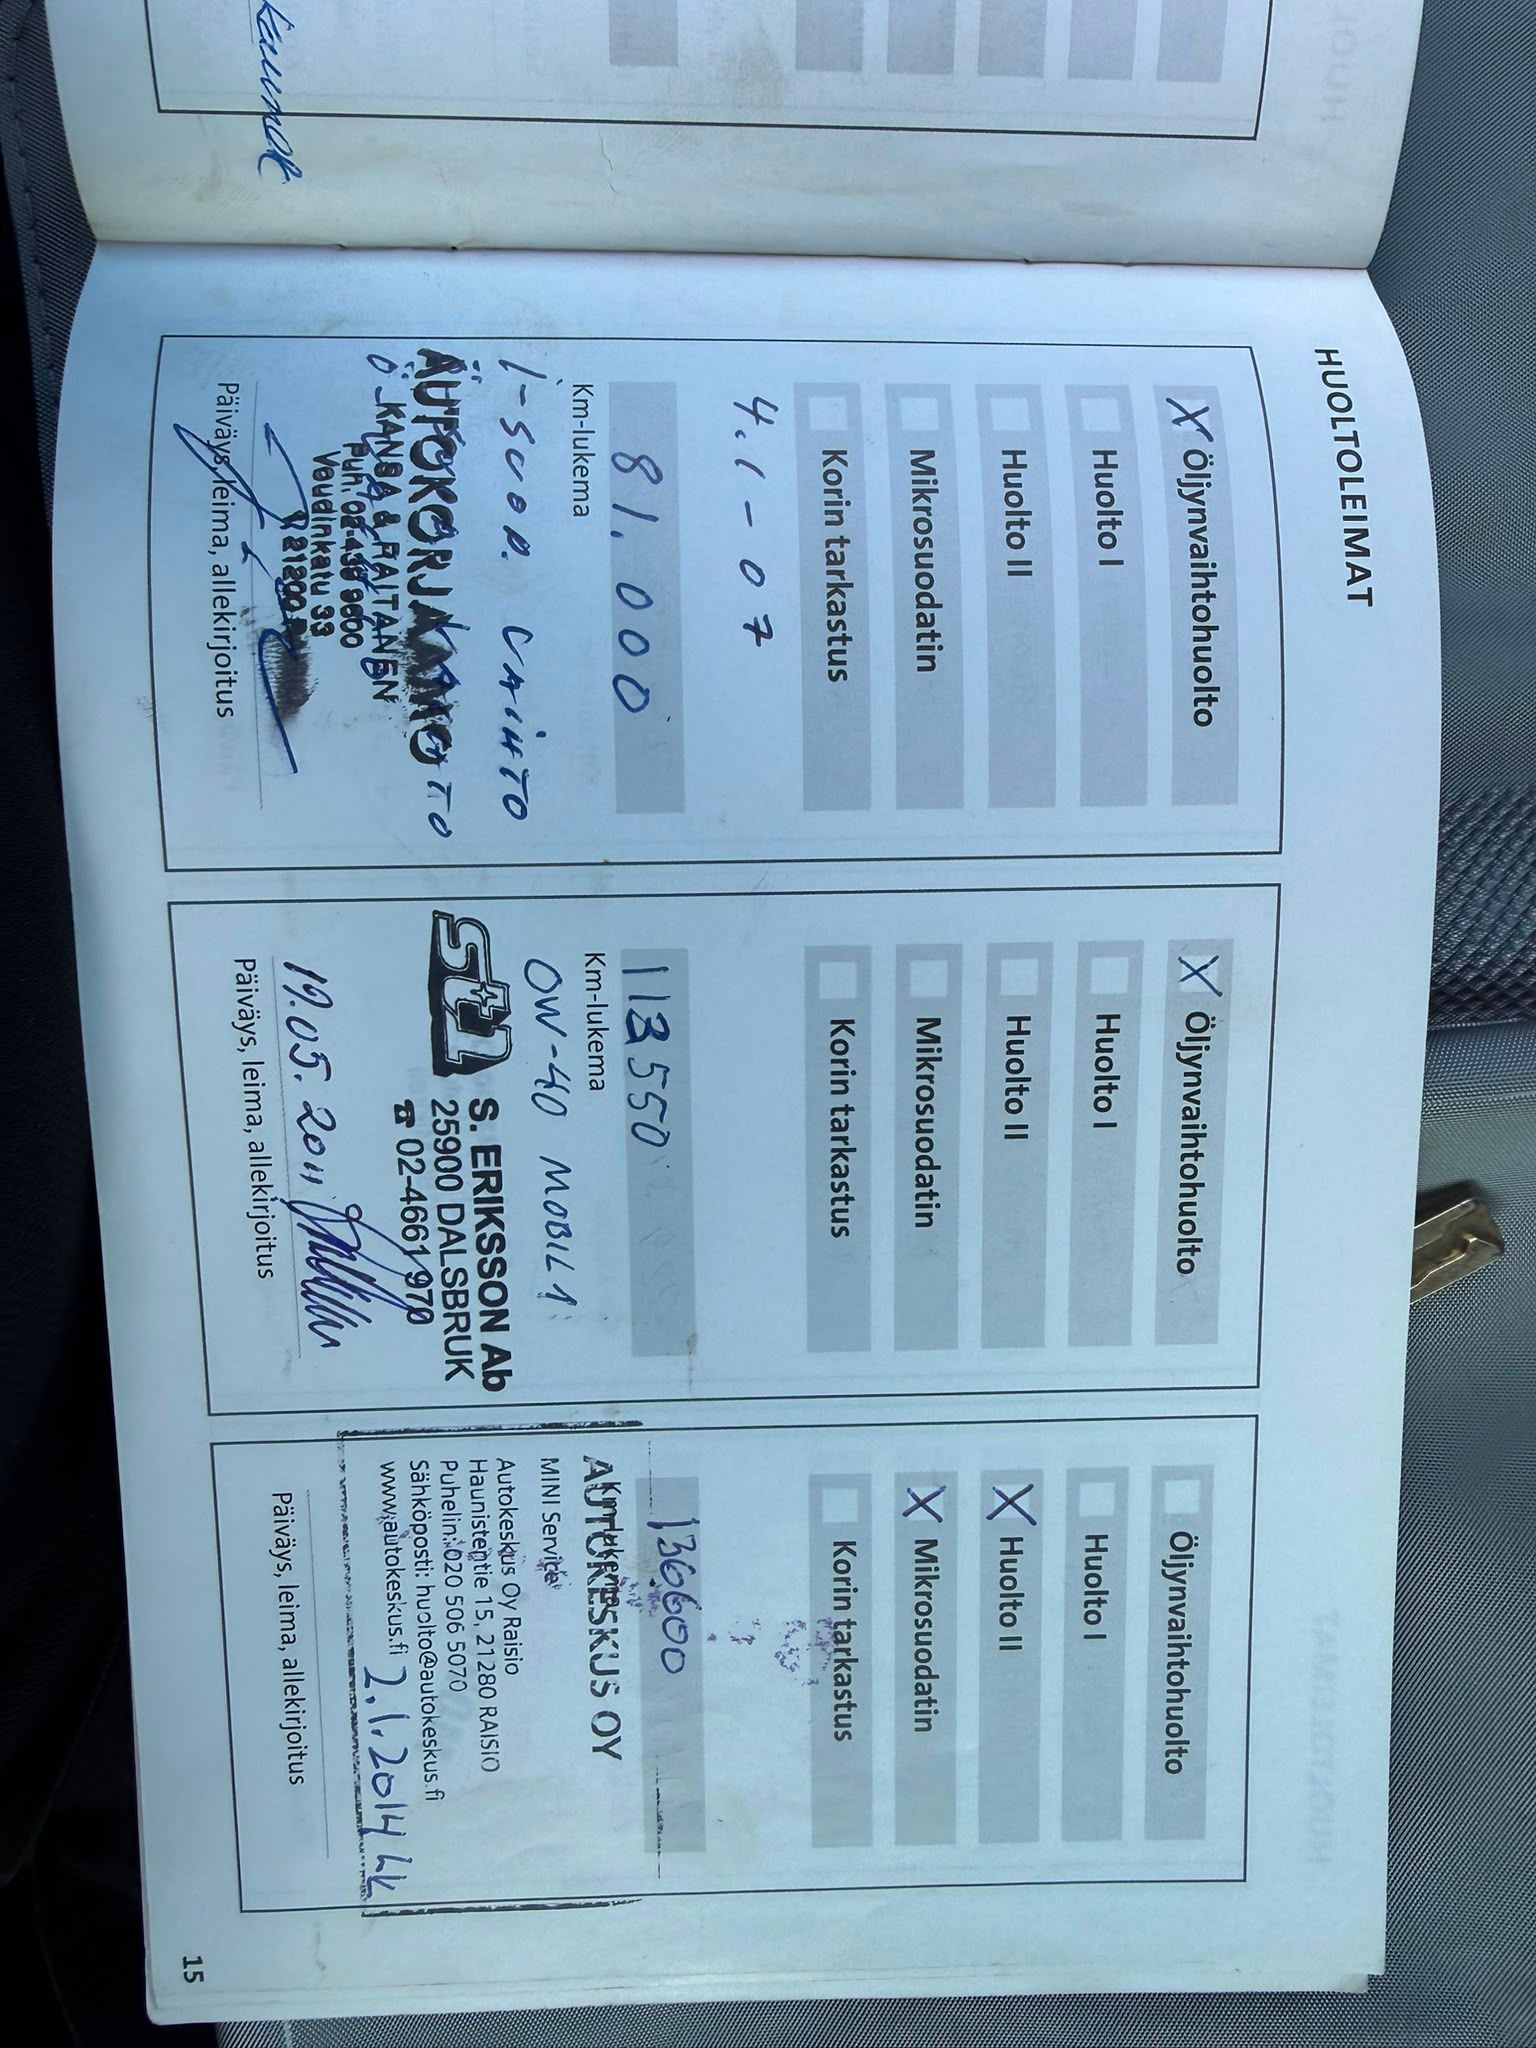 HUOLTOLEIMAT
X Öljynvaihtohuolto
Huolto I
Huolto II
Mikrosuodatin
Korin tarkastus
4.1-07
81.000
Km-lukema
i-SUOD. VAIHTO
AUTOKORJAAMO
KANSA & RAITANEN
Puh. 02-438 9600
Voudinkatu 33
21200
Päiväys, leima, allekirjoitus
X Öljynvaihtohuolto
Huolto I
Huolto II
Mikrosuodatin
Korin tarkastus
113550
Km-lukema
0W-40 MOBIL 1
St1
S. ERIKSSON Ab
25900 DALSBRUK
☎ 02-4661 970
19.05.2011
Päiväys, leima, allekirjoitus
Öljynvaihtohuolto
Huolto I
X Huolto II
X Mikrosuodatin
Korin tarkastus
136600
Km-lukema
AUTOKESKUS OY
MINI Service
Autokeskus Oy Raisio
Haunistentie 15, 21280 RAISIO
Puhelin: 020 506 5070
Sähköposti: huolto@autokeskus.fi
www.autokeskus.fi 2.1.2014
Päiväys, leima, allekirjoitus
15